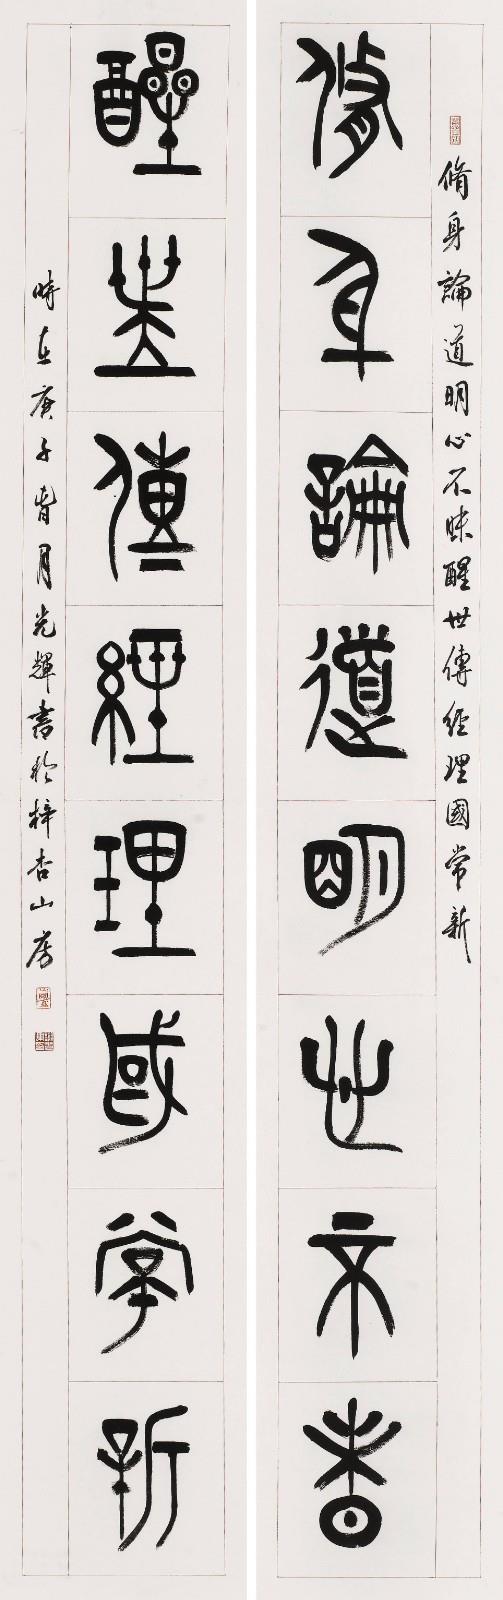 脩身論道明心不昧醒世傳經理國常新
脩身論道明心不昧
醒世傳經理國常新
時在庚子月光輝書於梓杏山房